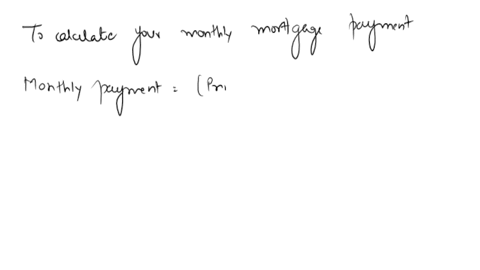 To calculate your monthly mortgage payment
Monthly payment = (Pri